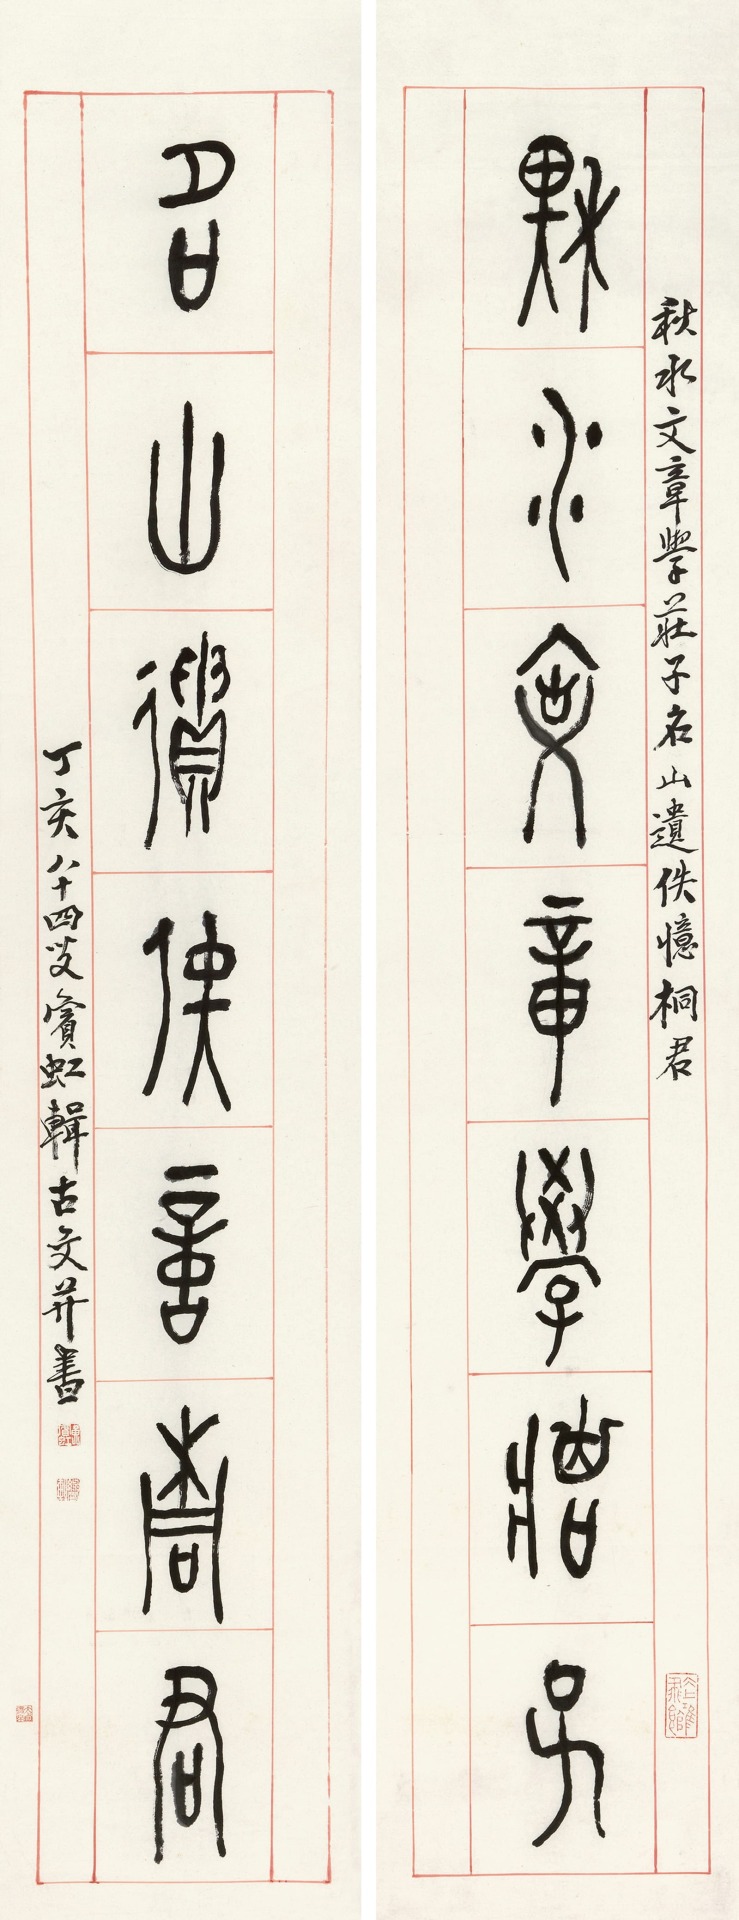 秋水文章學莊子
秋水文章學莊子名山遺佚憶桐君
名山遺佚憶桐君
丁亥八十四叟賓虹輯古文并書